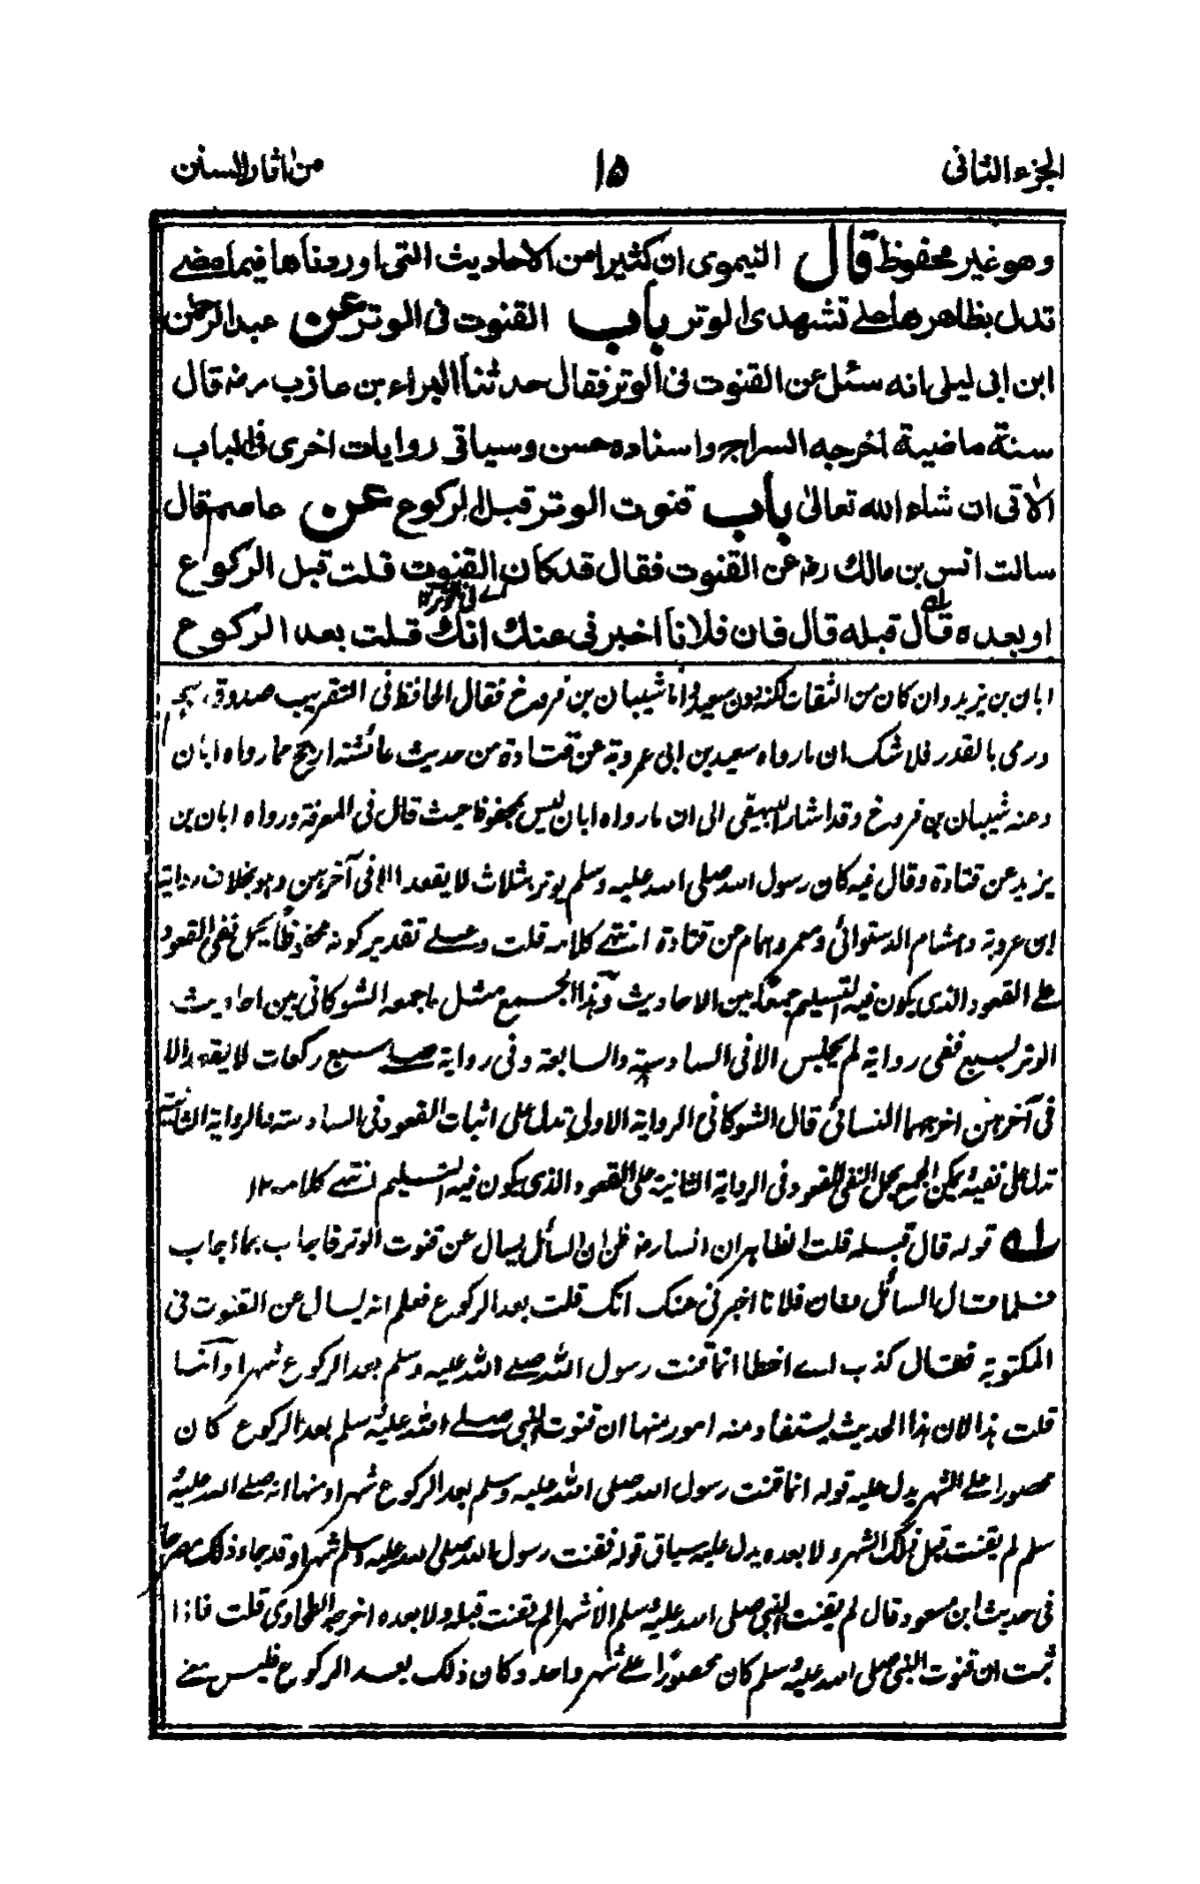 الجزء الثانی
١٥
من اٰثار السنن
وهو غیر محفوظ قال النیموی ان کثیرا من الاحادیث التی اوردناها فیما مضے
تدل بظاهرها علے تشهدی الوتر باب القنوت فی الوتر عن عبد الرحمٰن
ابن ابی لیلی انه سئل عن القنوت فی الوتر فقال حدثنا البراء بن عازب رضہ قال
سنة ماضیة اخرجه السراج واسناده حسن وسیاتی روایات اخری فی الباب
الاٰتی ان شاء الله تعالیٰ باب قنوت الوتر قبل الرکوع عن عاصم قال
سالت انس بن مالک رضہ عن القنوت فقال قد کان القنوت قلت قبل الرکوع
اے فی الوتر ١٢
او بعده قال قبله قال فان فلانا اخبرنی عنک انک قلت بعد الرکوع
ابان بن یزید وان کان من الثقات لکنہ دون سعید واما شیبان بن فروخ فقال الحافظ فی التقریب صدوق یہم
ورمی بالقدر فلا شک ان ما رواہ سعید بن ابی عروبۃ عن قتادۃ من حدیث عائشۃ ارجح مما رواہ ابان
وعنہ شیبان بن فروخ وقد اشار البیہقی الی ان ما رواہ ابان لیس بمحفوظ حیث قال فی المعرفۃ ورواہ ابان بن
یزید عن قتادۃ وقال فیہ کان رسول اللہ صلی اللہ علیہ وسلم یوتر بثلاث لا یقعد الا فی آخرہن وہو بخلاف روایۃ
ابن عروبۃ وہشام الدستوائی ومعمر وہمام عن قتادۃ انتہے کلامہ قلت وعلے تقدیر کونہ محفوظا یحمل نفی القعود
علے القعود الذی یکون فیہ التسلیم جمعًا بین الاحادیث وہذا الجمع مثل ما جمعہ الشوکانی بین احادیث
الوتر بسبع ففی روایۃ لم یجلس الا فی السادسۃ والسابعۃ وفی روایۃ صلے سبع رکعات لا یقعد الا
فی آخرہن اخرجہما النسائی قال الشوکانی الروایۃ الاولی تدل علی اثبات القعود فی السادسۃ والروایۃ الثانیۃ
تدل علی نفیہ یمکن الجمع بحمل النفی للقعود فی الروایۃ الثانیۃ علی القعود الذی یکون فیہ التسلیم انتہے کلامہ ١٢
لہ قولہ قال قبلہ قلت الظاہر ان انسا رضہ ظن ان السائل یسال عن قنوت الوتر فاجاب بما اجاب
فلما قال السائل فان فلانا اخبرنی عنک انک قلت بعد الرکوع فعلم انہ یسال عن القنوت فی
المکتوبۃ فقال کذب اے اخطا انما قنت رسول اللہ صلے اللہ علیہ وسلم بعد الرکوع شہرا وانما
قلت ہذا لان ہذا الحدیث یستفاد منہ امور منہا ان قنوت النبی صلے اللہ علیہ وسلم بعد الرکوع کان
محصورا علے الشہر یدل علیہ قولہ انما قنت رسول اللہ صلی اللہ علیہ وسلم بعد الرکوع شہرا ومنہا انہ صلے اللہ علیہ و
سلم لم یقنت قبل ذلک الشہر ولا بعدہ یدل علیہ سیاق قولہ فقنت رسول اللہ صلی اللہ علیہ وسلم شہرا وقد جاء ذلک مصرحا
فی حدیث ابن مسعود قال لم یقنت النبی صلی اللہ علیہ وسلم الا شہرا لم یقنت قبلہ ولا بعدہ اخرجہ الطحاوی قلت فاذا
ثبت ان قنوت النبی صلی اللہ علیہ وسلم کان محصورًا علے شہر واحد وکان ذلک بعد الرکوع فلیس معنے